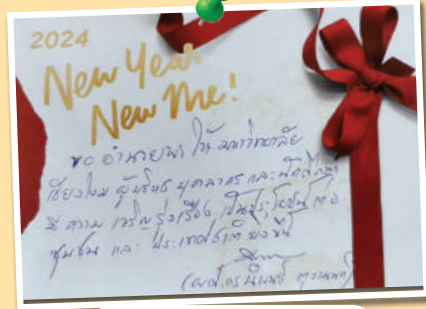 2024
New Year
New Me!
ขอ อำนวยพร ให้ มหาวิทยาลัย
เชียงใหม่ ผู้บริหาร บุคลากร และนักศึกษา
มี ความ เจริญรุ่งเรือง เป็นประโยชน์ ต่อ
ชุมชน และ ประเทศชาติ ยิ่งขึ้น